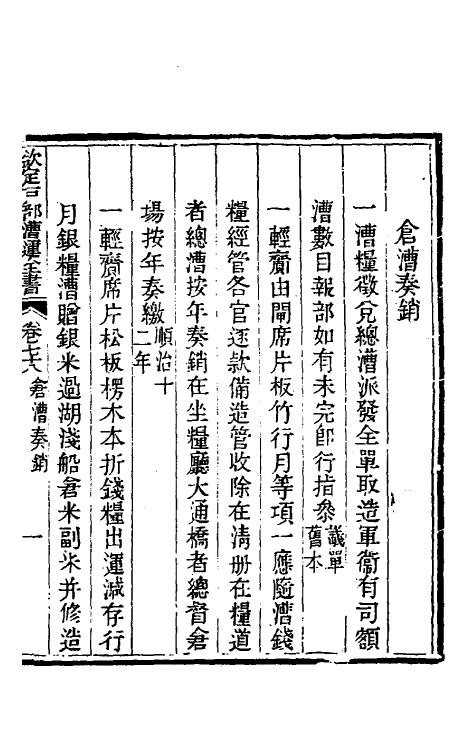 倉漕奏銷
一漕糧徵兌總漕派發全單取造軍衞有司額
漕數目報部如有未完卽行指叅議單舊本
一輕齎由閘席片板竹行月等項一應隨漕錢
糧經管各官逐款備造管收除在淸册在糧道
者總漕按年奏銷在坐糧廳大通橋者總督倉
塲按年奏繳順治十二年
一輕齎席片松板楞木本折錢糧出運減存行
月銀糧漕贈銀米過湖淺船倉米副米并修造
欽定戶部漕運全書 卷七六 倉漕奏銷 一